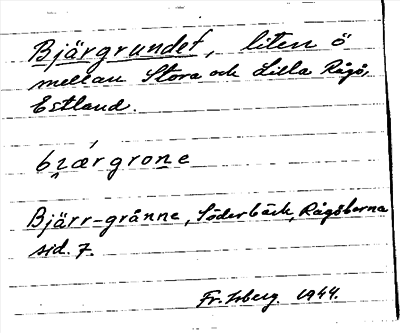 Bjärgrundet, liten ö
mellan Stora och Lilla Rågö,
Estland.
bi̯ærgrone
Bjärr-grånne, Söderbäck, Rågöborna
sid. 7.
Fr. Isberg 1944.